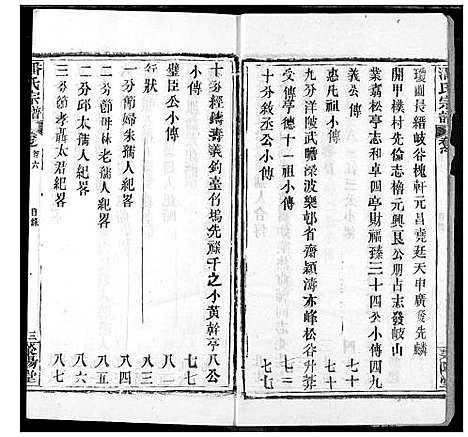 瓊圃晨縉岐谷槐軒元昌堯廷天申廣發先麟
開甲樸村先倫志檜元興艮公朋占志發岐山
業嘉松亭志和卓四亭財福臻三十四公小傳四九
義公傳
惠凡祖小傳
受傳學德十一祖小傳
七七
九分洋陂武瞻深波樂邨省齋穎濤亦峰松谷升莽
十分敘亭
十三公小傳
七七
十分經鑄壽義鈞臺竹塢先
千之小黃幹亭八公
小傳
七七
璧臣公小傳
八二
行狀
八三
一分節婦余孺人紀畧
八四
二分節母林老孺人紀畧
八五
二分邱太孺人紀畧
八六
三分節孝聶太君紀畧
八七
潘氏宗譜
卷首六
目錄
三
滎陽堂